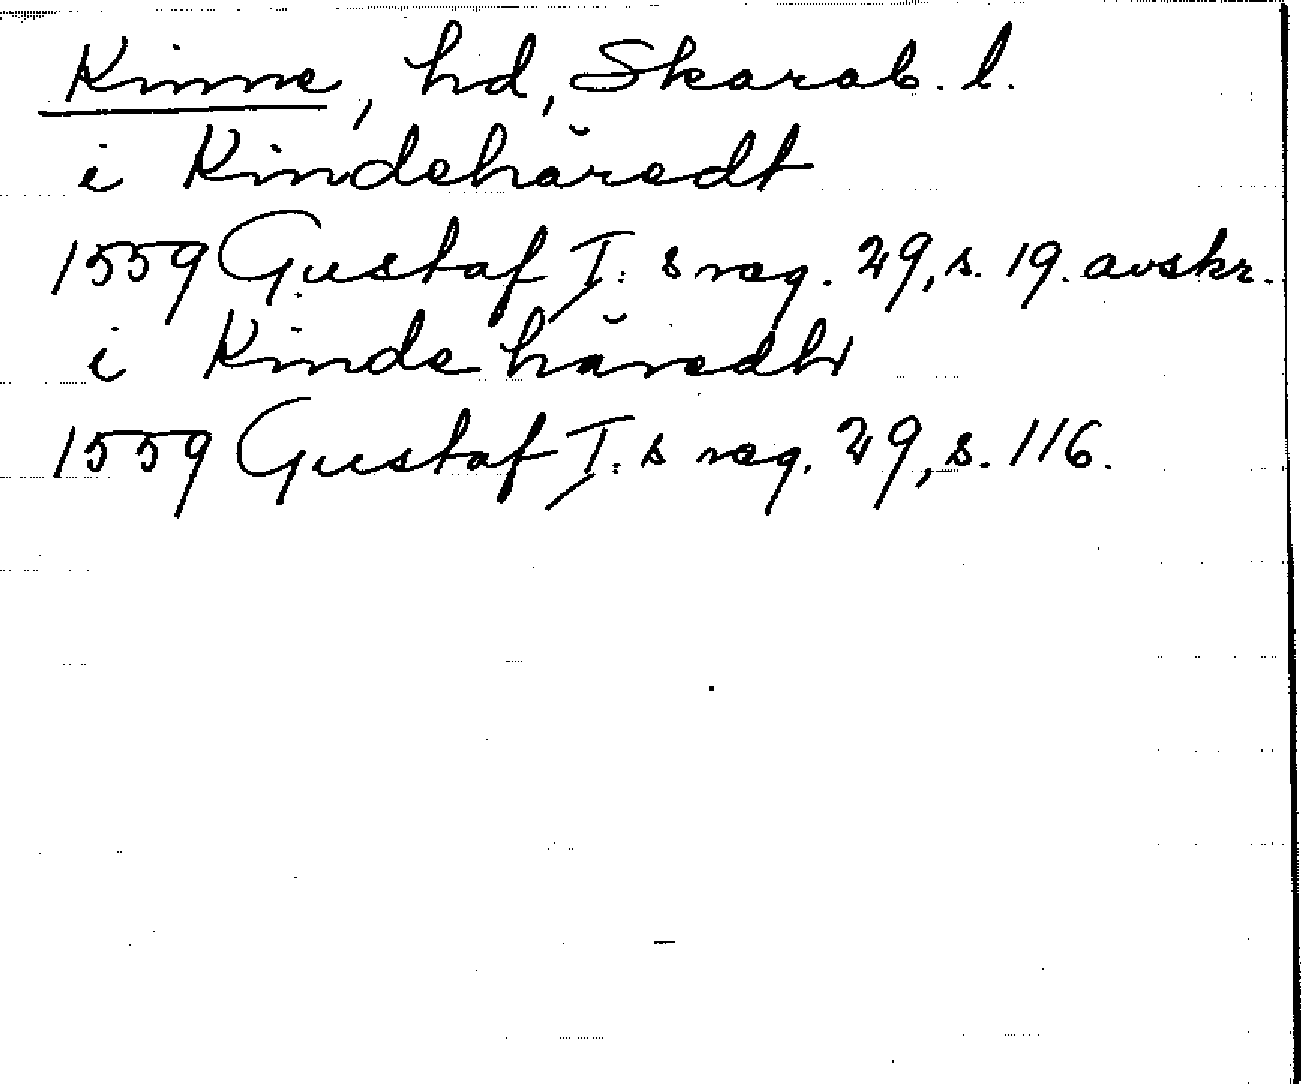 Kinne, hd, Skarab. l.
i Kindehäredt
1559 Gustaf I:s reg. 29, s. 19. avskr.
i Kinde häredh
1559 Gustaf I:s reg. 29, s. 116.